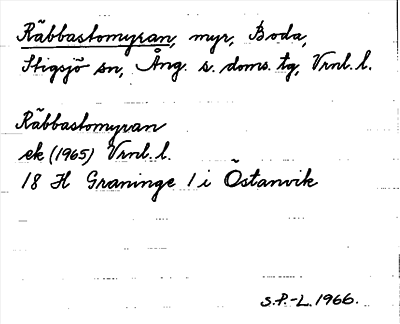 Räbbastomyran, myr, Boda,
Stigsjö sn, Ång. s. doms. tg, Vrnl. l.
Räbbastomyran
ek (1965) Vrnl. l.
18 H Graninge 1 i Östanvik
S.P.-L. 1966.